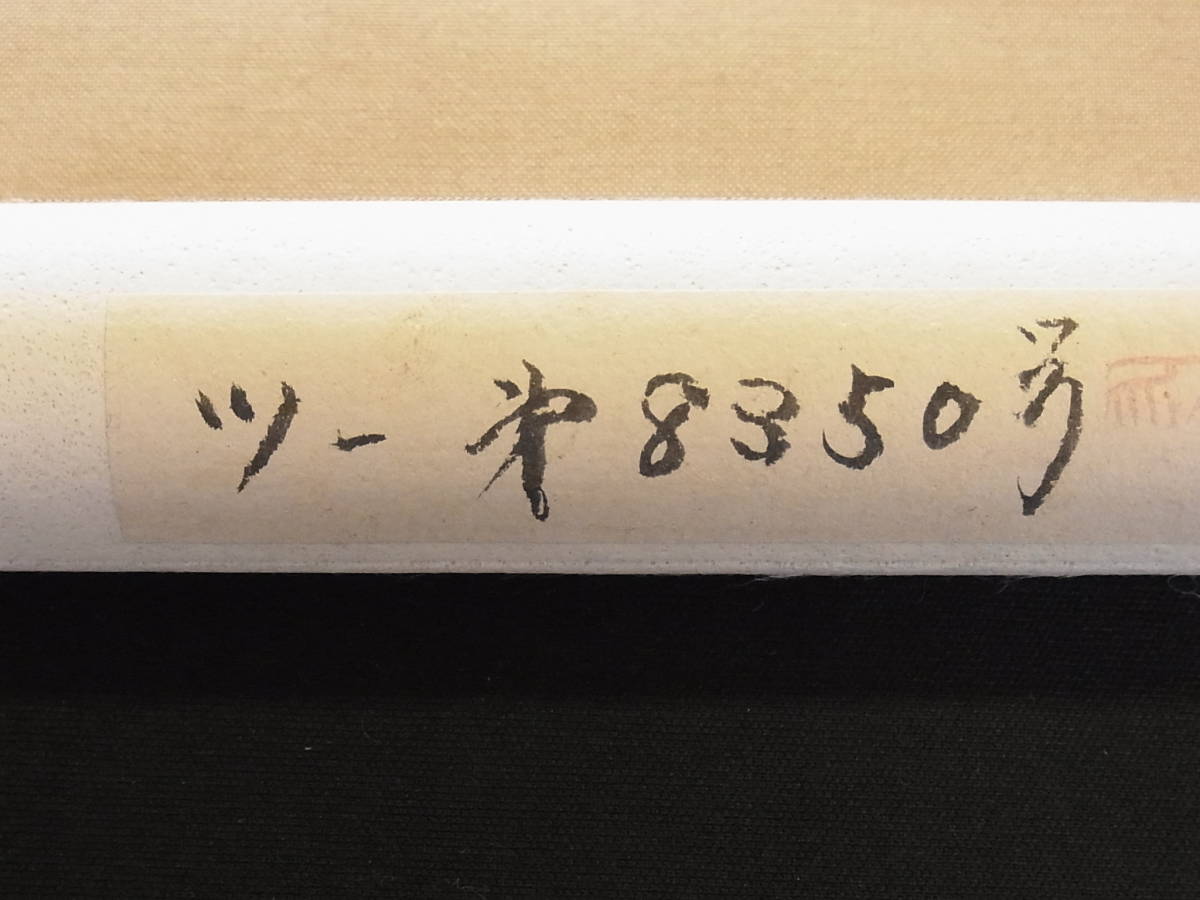 ツー第8350号